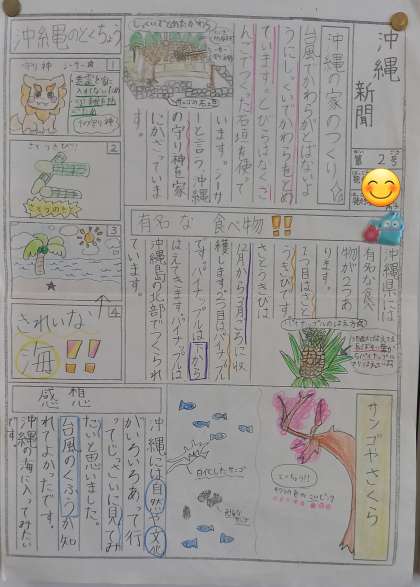 沖縄
新聞
第2号
沖縄の家のつくり
台風でかわらがとばないよ
うにしっくいでかわらをとめ
ています。
んごでつくった石垣を使って
います。シーサ
ーと言う沖縄
の守り神を家
にかざっていま
す。
沖縄のとくちょう
1
守り神 シーサー
2
さとうきび!!
3
4
きれいな
海!!
有名な食べ物!!
沖縄県には
有名な食べ
物が2つあ
ります。
1つ目はさと
うきびです。
さとうきびは
12月から3月ごろに収
穫します。2つ目はパイナップル
です。パイナップルは
はえてきます。パイナップルは
沖縄島の北部でつくられ
ています。
サンゴやさくら
白化したサンゴ
感想
沖縄には自然や文化
がいろいろあって行
ってじっさいに見てみ
たいと思いました。
台風のくふうが知
れてよかったです。
沖縄の海に入ってみたい
です。